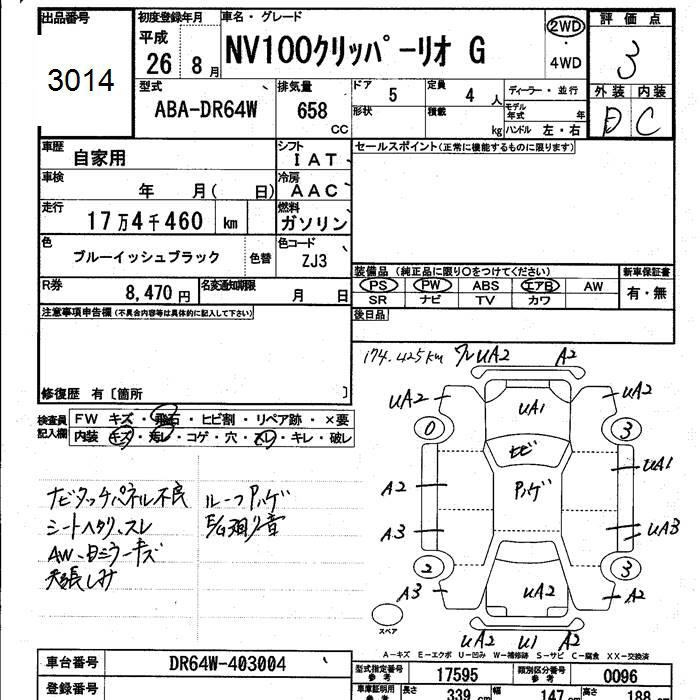 出品番号 初度登録年月 車名・グレード 評価点
3014
平成
26 8月 NV100クリッパーリオ G 2WD ・ 4WD 3
型式 排気量 ドア 定員 ディーラー・並行 外装 内装
ABA-DR64W 658 CC 5 4人 D C
形状 積載 kg モデル年式 年
ハンドル 左・右
車歴 自家用 シフト IAT セールスポイント(正常に機能するものに限ります)
車検 年 月( 日) 冷房 AAC
走行 17万4千460 km 燃料 ガソリン
色 ブルーイッシュブラック 色替 色コード ZJ3
R券 8,470円 名変通知期限 月 日
装備品 (純正品に限り○をつけてください) 新車保証書
PS PW ABS エアB AW 有・無
SR ナビ TV カワ
注意事項申告欄(不具合内容等は具体的に記入して下さい) 後日品
修復歴 有〔箇所 〕
検査員記入欄 FW キズ・飛石・ヒビ割・リペア跡・×要
内装 キズ・汚レ・コゲ・穴・スレ・キレ・破レ
174.425km UA2 A2
UA2 UA1 UA2
0 ヒビ 3
A2 ハゲ UA1
A3 UA3
2 3
A3 UA2 A2
スペア UA2 U1 A2
ナビタッチパネル不良 ルーフハゲ
シートヘタリ、スレ E/G廻り音
AW、ミラーキズ
天張しみ
A-キズ E-エクボ U-凹み W-補修跡 S-サビ C-腐食 XX-交換済
車台番号 DR64W-403004
型式指定番号参考 17595 類別区分番号参考 0096
登録番号
車庫証明用参考 長さ 339 cm 幅 147 cm 高さ 188 cm